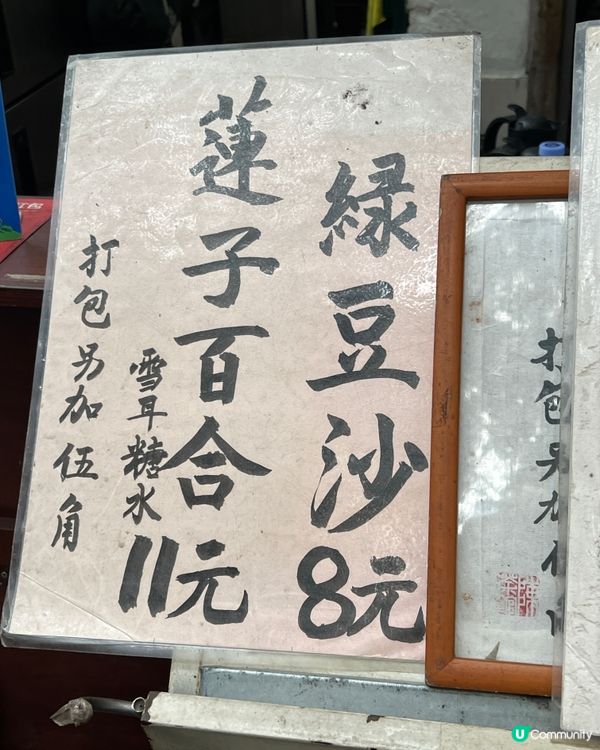 綠豆沙8元
蓮子百合
雪耳糖水
11元
打包另加伍角
打包另加伍
U Community